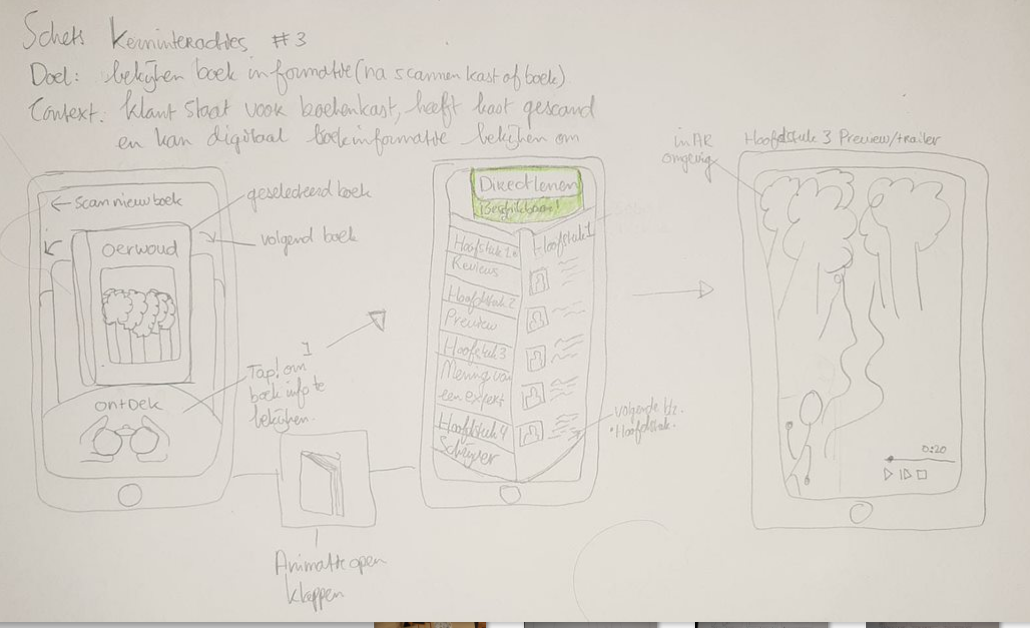 Schets Kerninteracties #3
Doel: bekijken boek informatie (na scannen kast of boek)
Context: klant staat voor boekenkast, heeft kast gescand
en kan digitaal boekinformatie bekijken om
← Scan nieuw boek
geselecteerd boek
volgend boek
oerwoud
ontdek
1
Tap! om
boek info te
bekijken.
Animatie open
klappen
Direct lenen
Beschikbaar!
Hoofdstuk 1
Reviews
Hoofdstuk 2
Preview
Hoofdstuk 3
Mening van
een expert
Hoofdstuk 4
Schrijver
Hoofdstuk 1
volgende blz.
• Hoofdstuk.
in AR
omgeving
Hoofdstuk 3 Preview/trailer
0:20